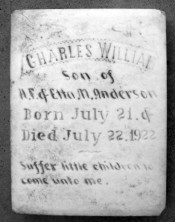 CHARLES WILLIAM
Son of
H.F. & Etta M. Anderson
Born July 21. &
Died July 22, 1922
Suffer little children to
come unto me.